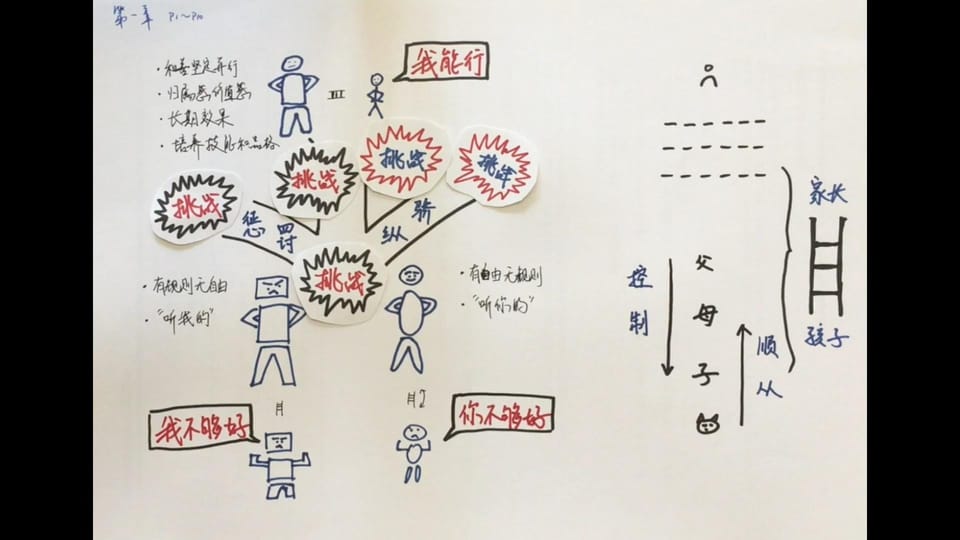 第一章 P1~P10
· 和善坚定并行
· 归属感价值感
· 长期效果
· 培养技能和品格
我能行
挑战
挑战
挑战
挑战
挑战
惩罚
骄纵
· 有规则无自由
· "听我的"
· 有自由无规则
· "听你的"
我不够好
你不够好
控制
父
母
子
顺从
家长
孩子